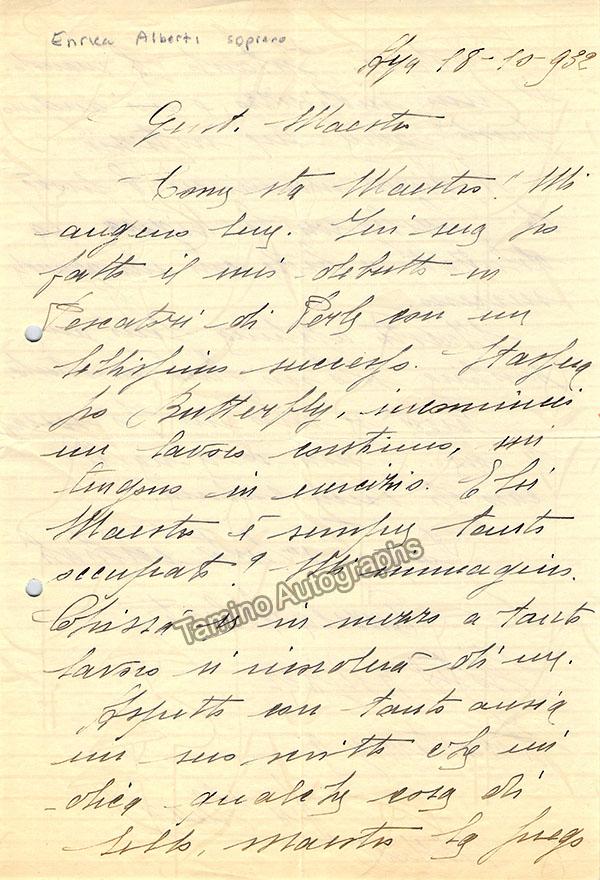 Enrica Alberti soprano
Aja 18-10-932
Gent. Maestro
Come sta Maestro? Mi
auguro bene. Ieri sera ho
fatto il mio debutto in
Pescatori di Perle con un
bellissimo successo. Stassera
ho Butterfly, incomincio
un lavoro continuo, mi
tengono in esercizio. E lei
Maestro è sempre tanto
occupato? Mi immagino.
Chissà se in mezzo a tanto
lavoro si ricorderà di me.
Aspetto con tanta ansia
un suo scritto che mi
dica qualche cosa di
bello, Maestro La prego
Tamino Autographs